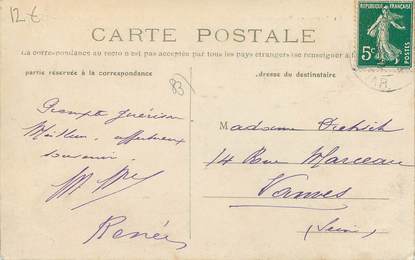 12 €
CARTE POSTALE
RÉPUBLIQUE FRANÇAISE
5c
POSTES
La correspondance au recto n'est pas acceptée par tous les pays étrangers (se renseigner à la
partie réservée à la correspondance
dresse du destinataire
83
Prompte guérison
Meilleur affectueux
souvenir
Renée
Madame
14 Rue Marceau
Vanves
(Seine)